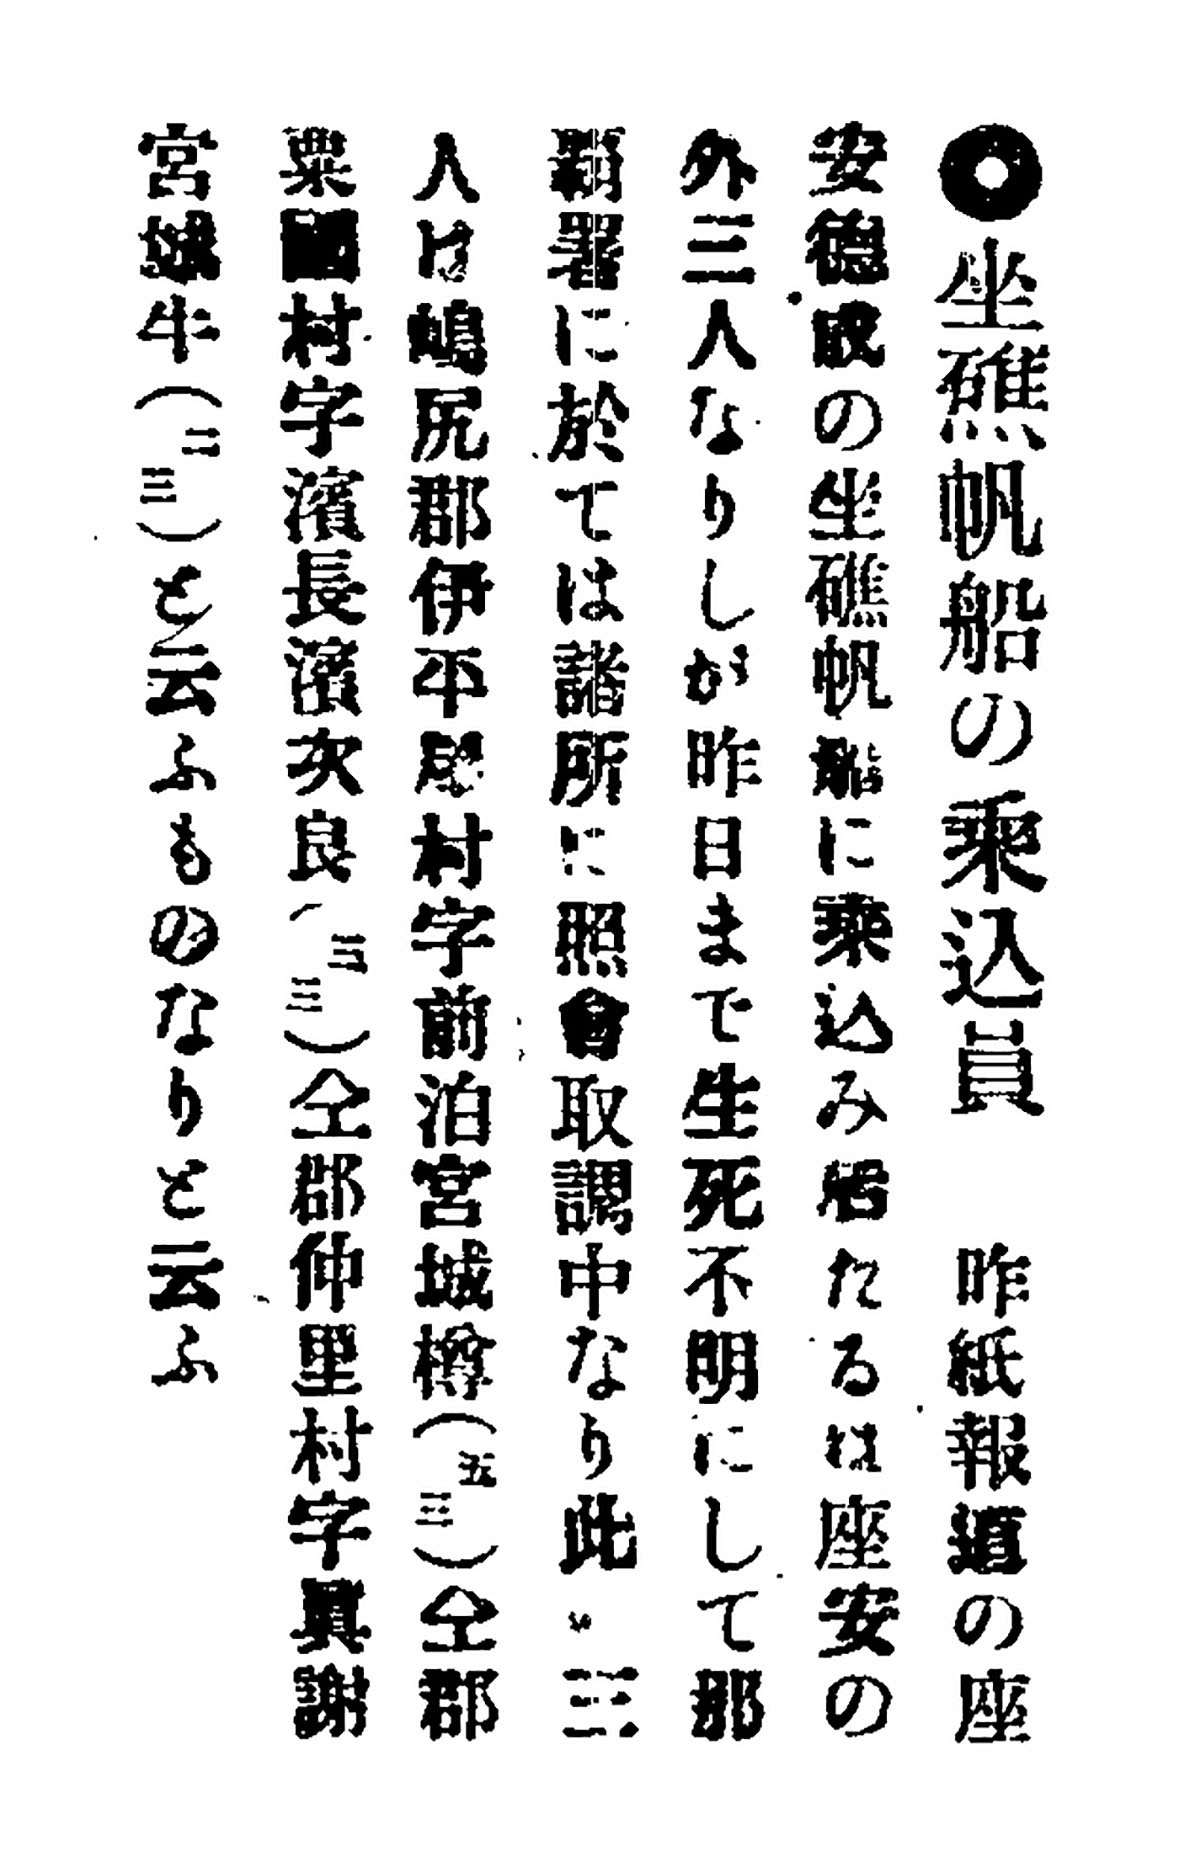 ◎坐礁帆船の乘込員　昨紙報道の座
安德　の坐礁帆船に乘込み居たるは座安の
外三人なりしが昨日まで生死不明にして那
覇署に於ては諸所に照會取調中なり此の三
人は嶋尻郡伊平屋村字前泊宮城樽（五三）仝郡
粟國村字濱長濱次良（三三）仝郡仲里村字眞謝
宮城牛（二三）と云ふものなりと云ふ